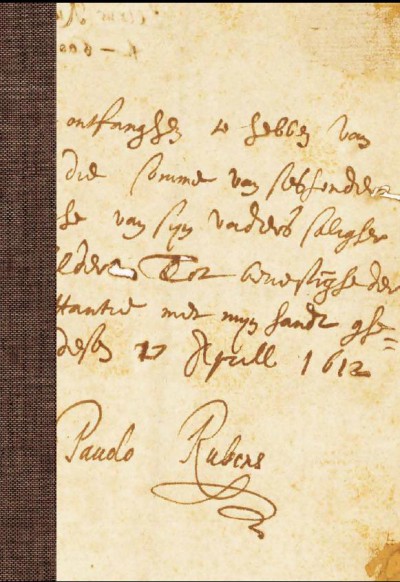 ontfanghen te hebben van
die somme van seshonder
he van syn vaders saligher
lders Tot bevestighe der
ttantie met myn handt ghe=
desen 17 Aprill 1612
Pauolo Rubens